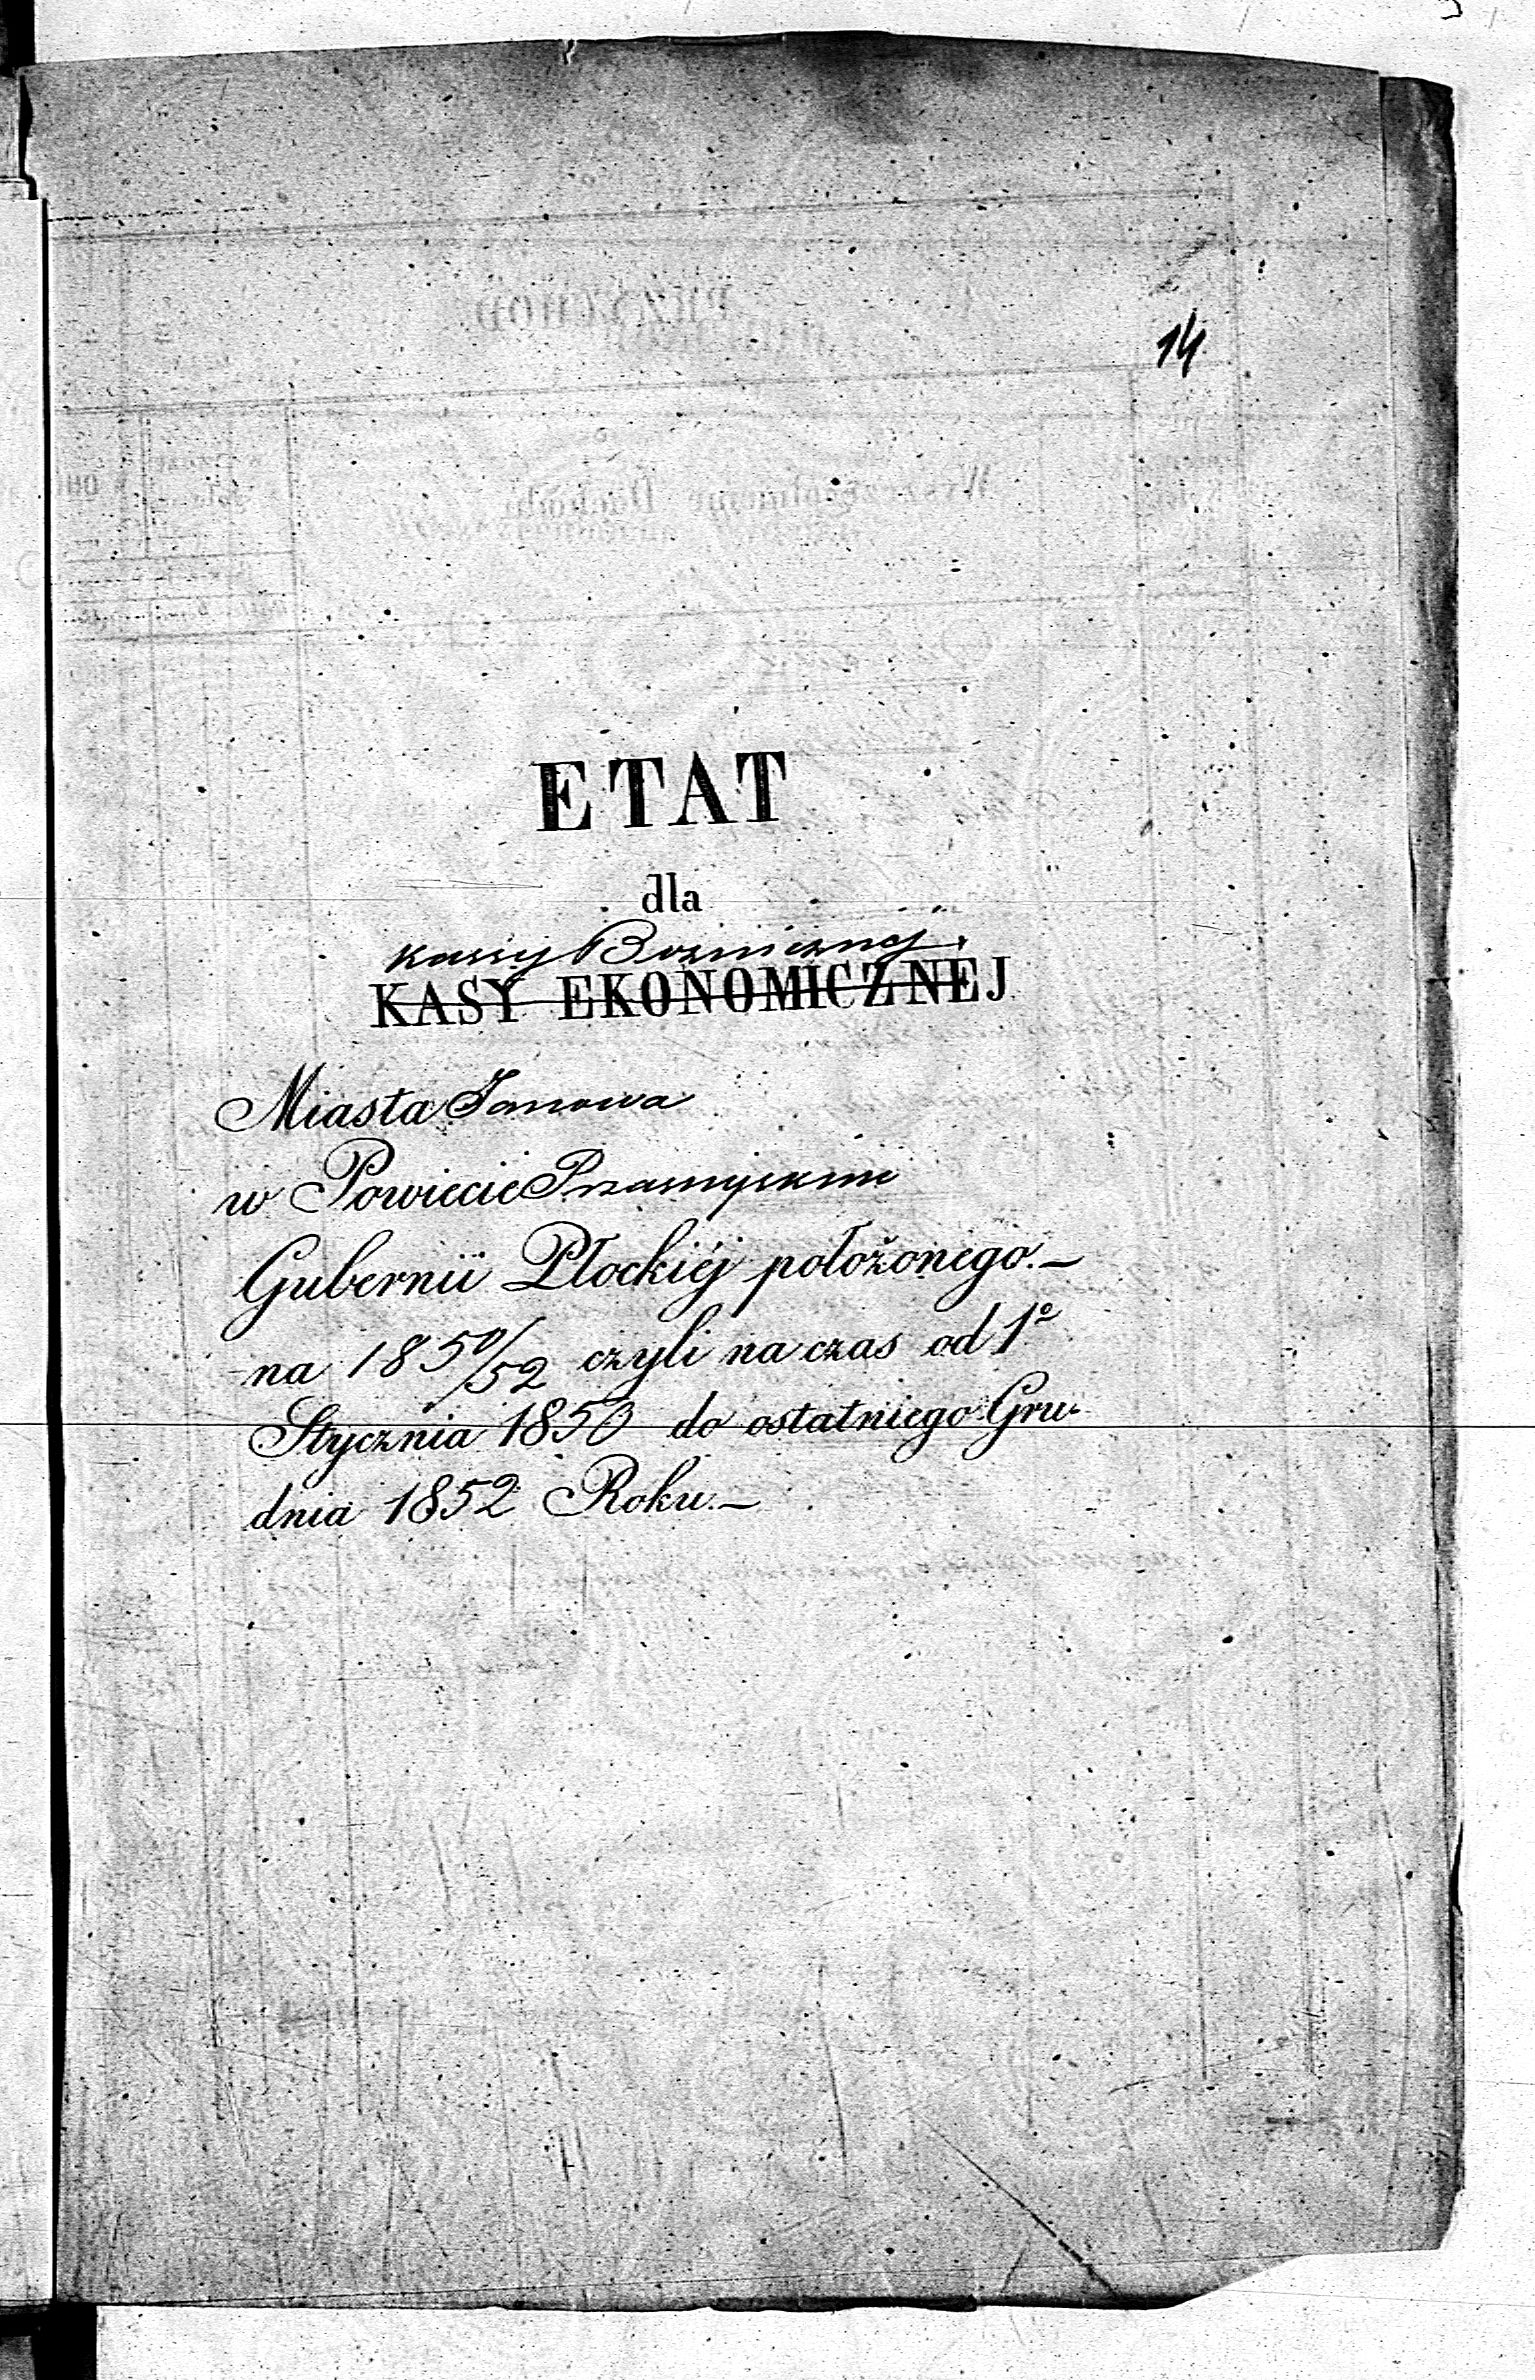 14
ETAT
dla
Kassy Bożniczney
KASY EKONOMICZNEJ
Miasta Janowa
w Powiecie Przasnyskim
Gubernii Płockiéj położonego.—
na 1850/52 czyli na czas od 1º
Stycznia 1850 do ostatniego Gru-
dnia 1852 Roku.—